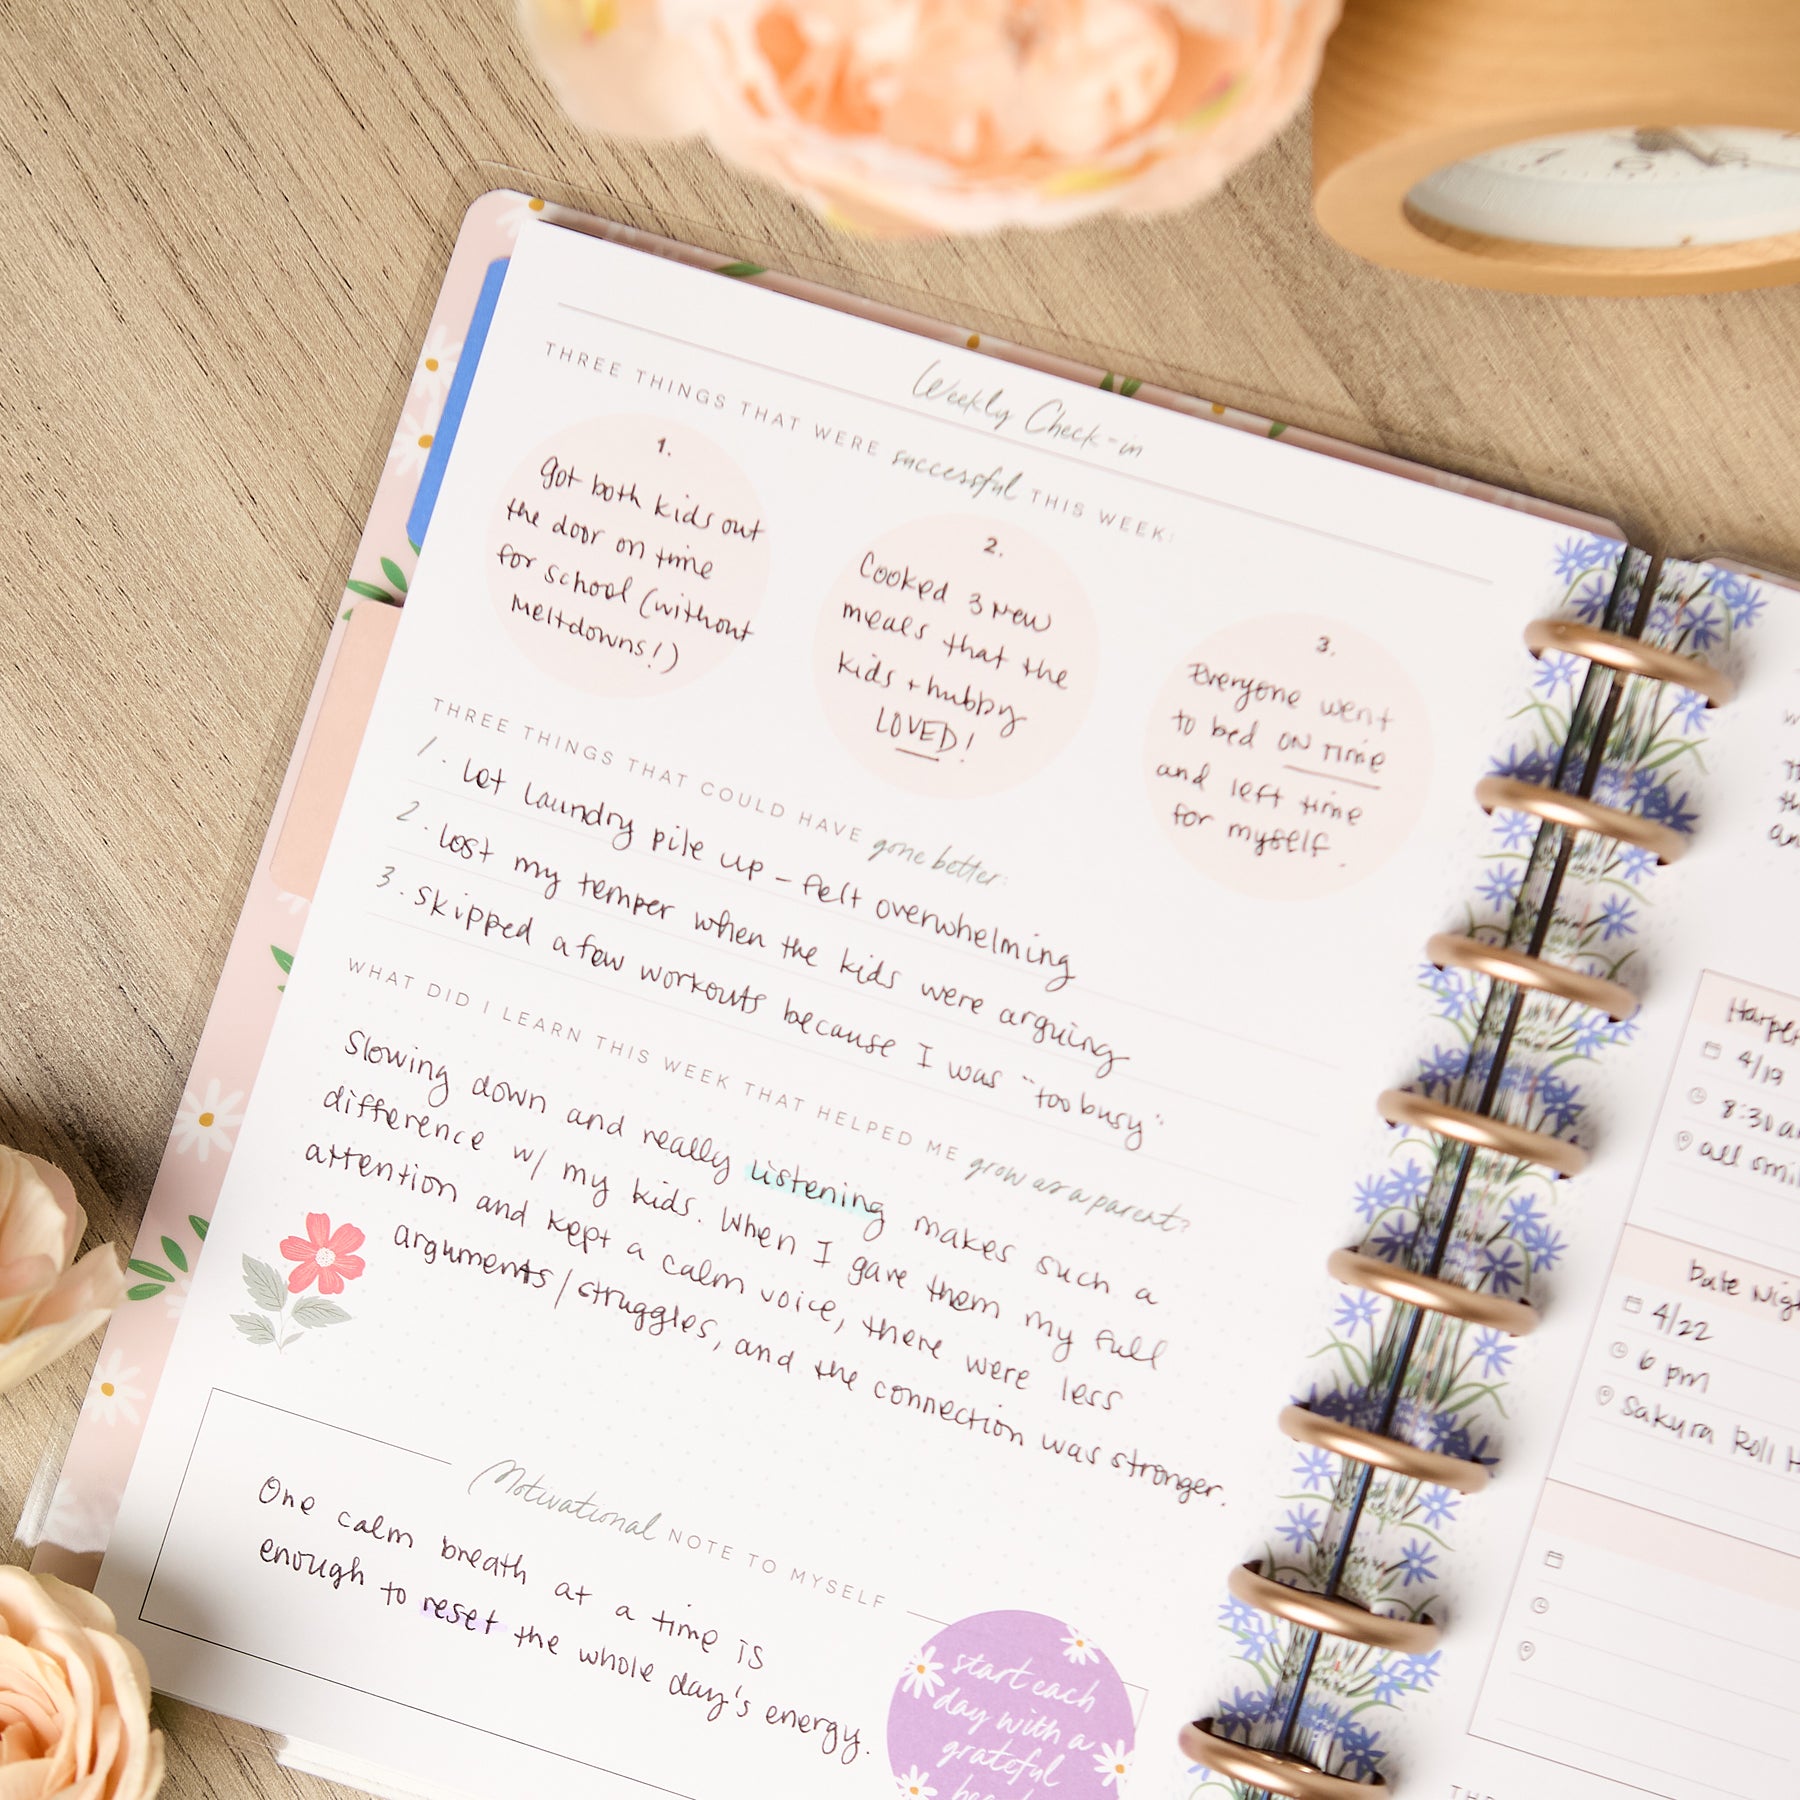 Weekly Check-in
THREE THINGS THAT WERE successful THIS WEEK:
1.
Got both kids out
the door on time
for school (without
meltdowns!)
2.
Cooked 3 new
meals that the
kids + hubby
LOVED!
3.
Everyone went
to bed ON TIME
and left time
for myself.
THREE THINGS THAT COULD HAVE gone better:
1. Let laundry pile up - felt overwhelming
2. Lost my temper when the kids were arguing
3. Skipped a few workouts because I was "too busy"
WHAT DID I LEARN THIS WEEK THAT HELPED ME grow as a parent?
Slowing down and really listening makes such a
difference w/ my kids. When I gave them my full
attention and kept a calm voice, there were less
arguments/struggles, and the connection was stronger.
Motivational NOTE TO MYSELF
One calm breath at a time is
enough to reset the whole day's energy.
start each
day with a
grateful
4/19
all
Date
4/22
6 pm
Sakura Roll